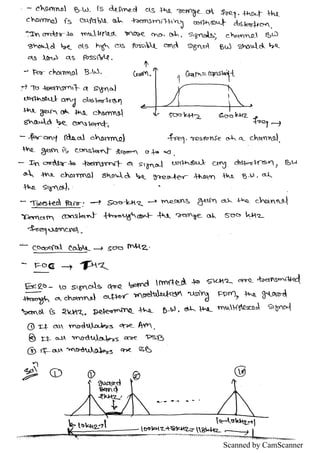 - channel B.W. is defined as the range of freq. that the
channel is capable of transmitting without distortion.
- In order to multiplex more no. of signals, channel BW
should be as high as possible and signal BW should be
as low as possible.
- For channel B.W.
Gain
Gain = constant
500KHZ 600KHZ freq
→ To transmit a signal
without any distortion
the gain of the channel
should be constant.
- for any ideal channel
freq. response of a channel
the gain is constant from 0 to ∞.
- In order to transmit a signal without any distortion, BW
of the channel should be greater than the B.W. of
the signal.
- Twisted Pair → 500KHZ → means gain of the channel
remain constant throughout the range of 500 KHZ
frequencies.
- coaxial cable → 500 MHZ.
- FOC → THZ
Ex:20- 10 signals are band limited to 5KHZ are transmitted
through a channel after modulation using FDM, the guard
band is 2KHZ, Determine the B.W. of the multiplexed signal
① If all modulators are AM,
② If all modulators are DSB
③ if all modulators are SSB
Sol ① ① guard Band 2KHZ ② ⑩
|←10KHZ→| |←10KHZ→|
100KHZ+18KHZ=118KHZ
Scanned by CamScanner